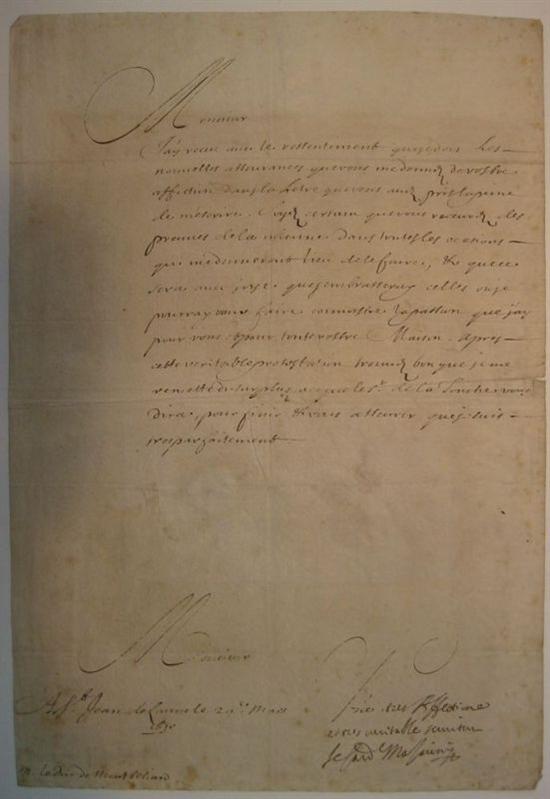 Monsieur
J'ay receu auec le ressentiment que je dois Les
nouuelles asseurances que vous me donnez de vostre
affection dans la Lettre que vous auez pris la peine
de m'escrire. Soyez certain que vous receurez des
preuues de la mienne dans toutes les occasions
qui me donneront lieu de le faire, & que ce
sera auec joye que j'embrasseray celles ou je
pourray vous faire connoistre la passion que j'ay
pour vous & pour toute vostre Maison. Apres
cette veritable protestation trouuez bon que je me
remette du surplus a ce que le Sr. de la
dira, pour finir & vous asseurer que je suis
tres parfaitement
Monsieur
A St. Jean de Laune le 29me Mars
1650
Vostres tres Affectionné
et tres veritable seruiteur
le Card Mazarini
Mr. le Duc de Montbeliard